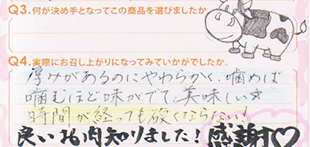 Q3.何が決め手となってこの商品を選びましたか
Q4.実際にお召し上がりになってみていかがでしたか。
厚みがあるのにやわらかく、噛めば
噛むほど味がでて美味しい☆
時間が経っても硬くならない!
良いお肉知りました!感謝♡